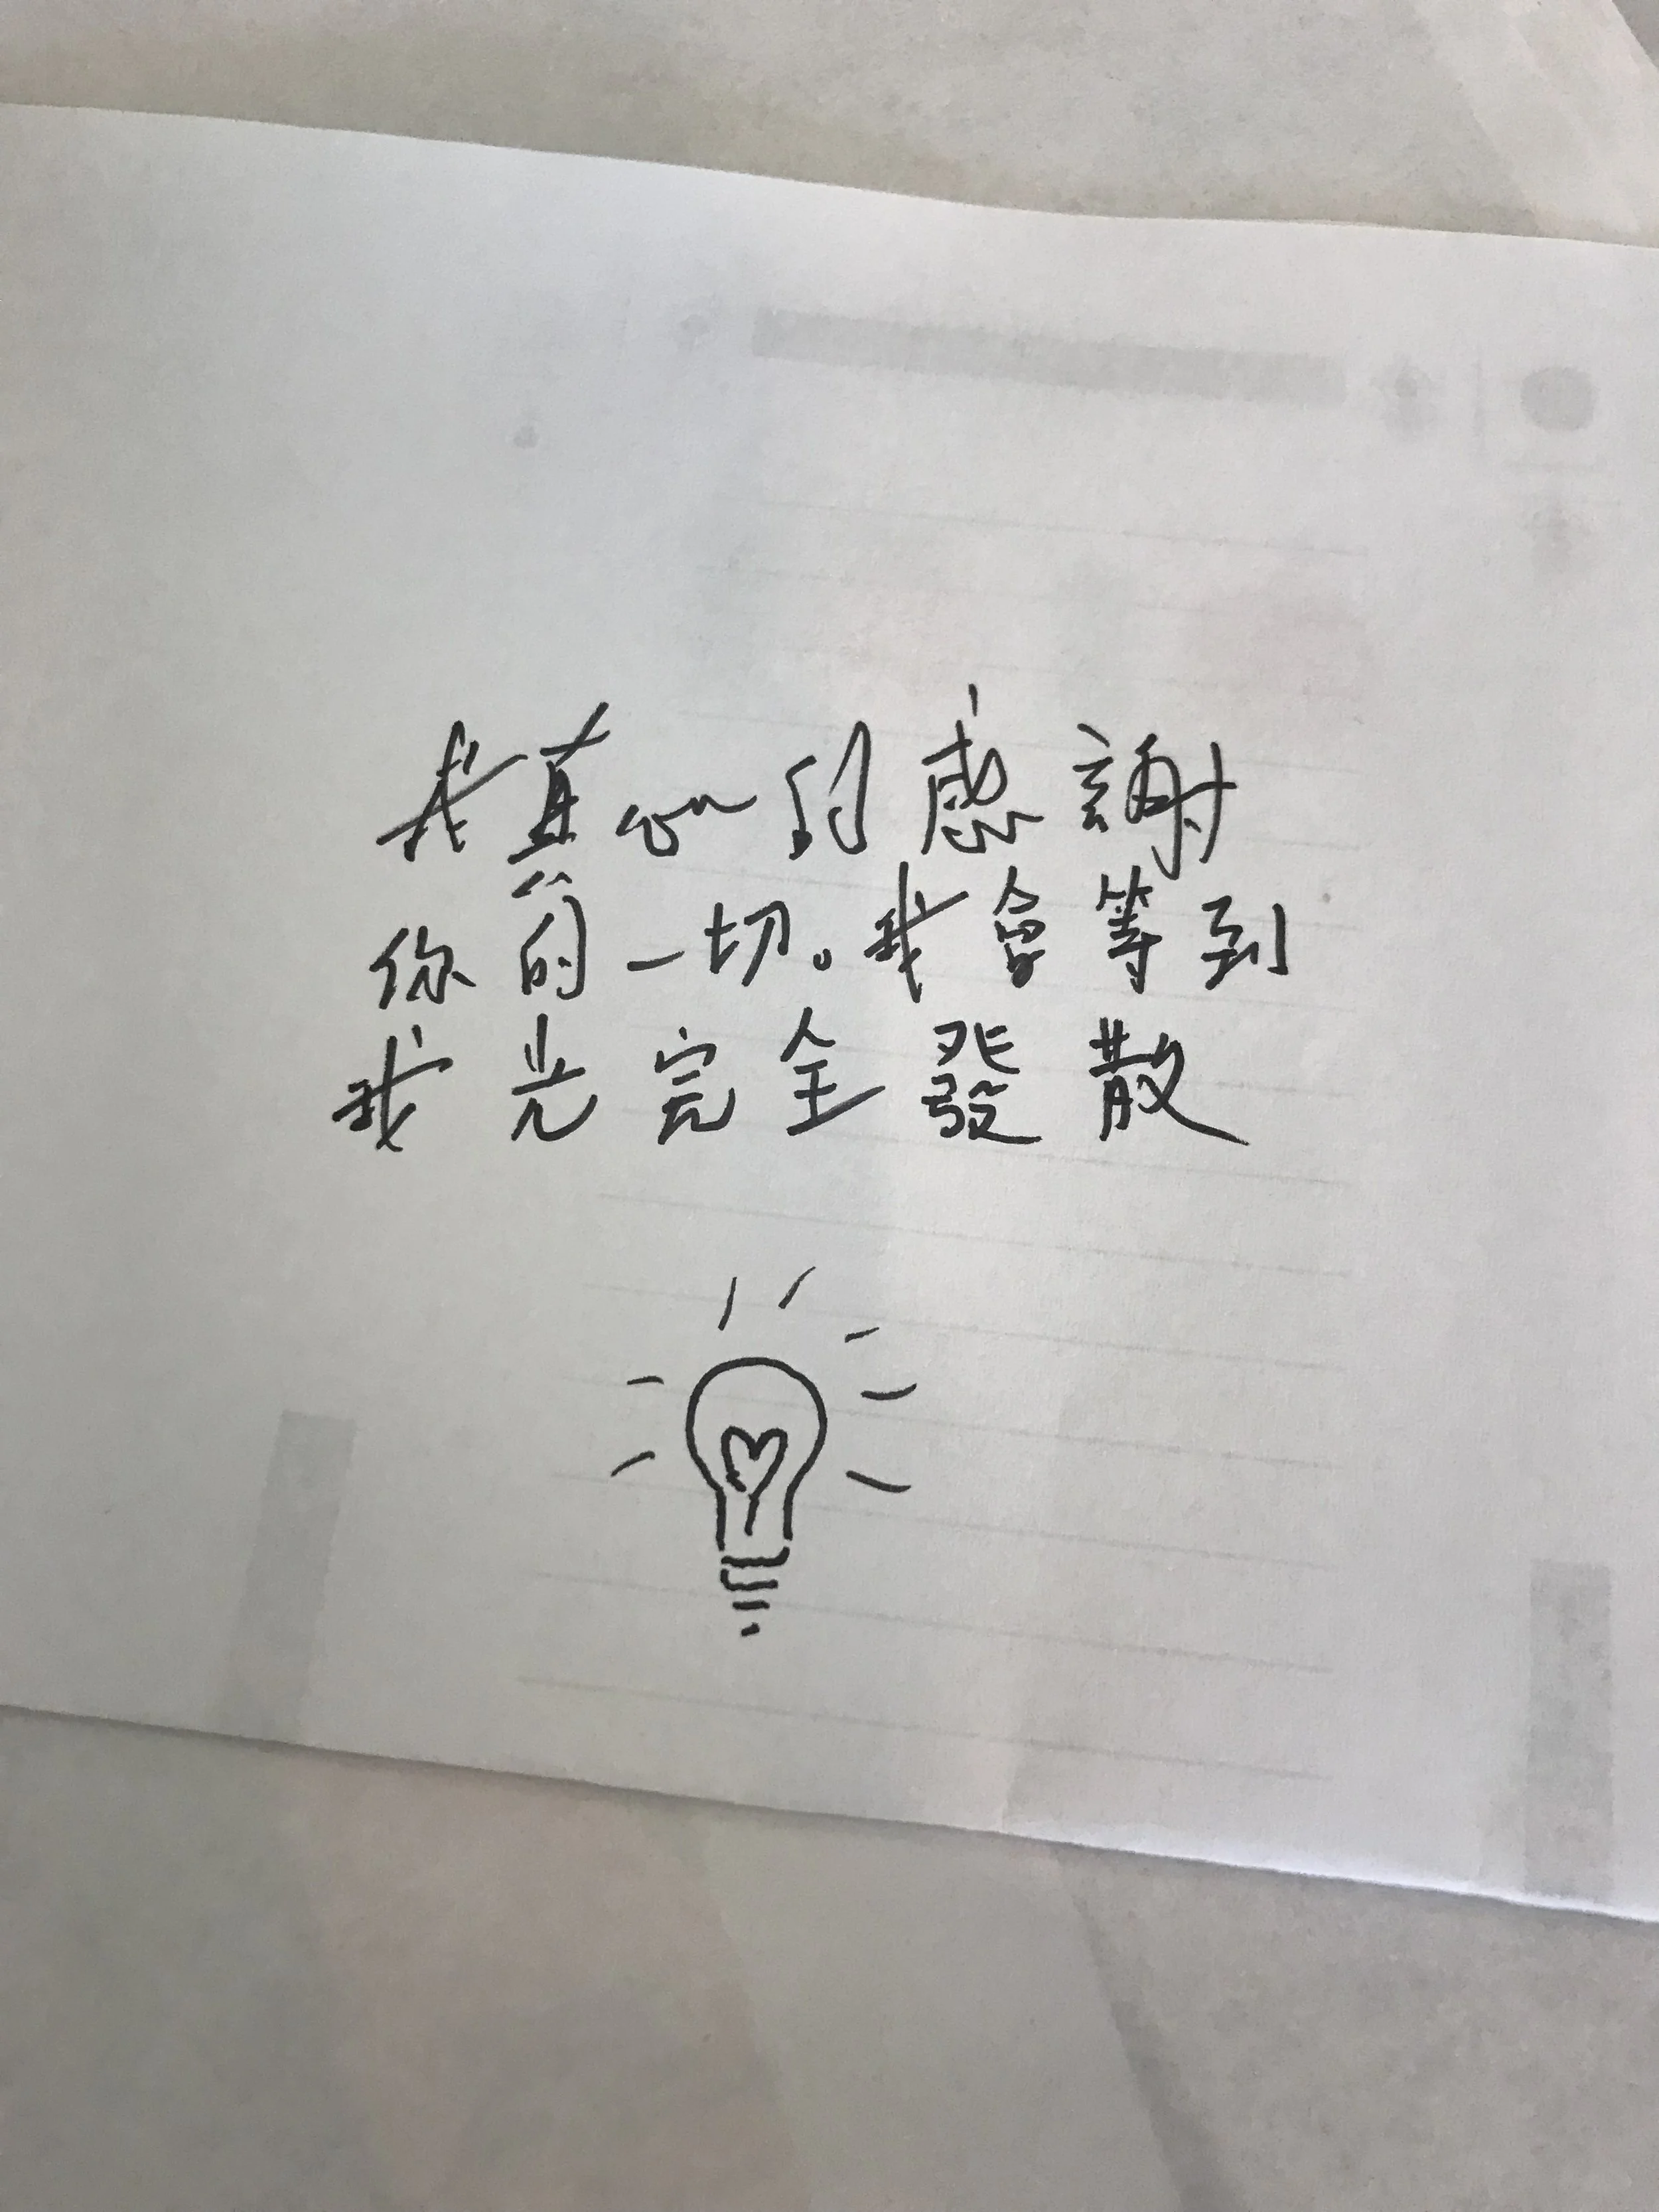 我真心的感謝
你的一切。我會等到
我光完全發散